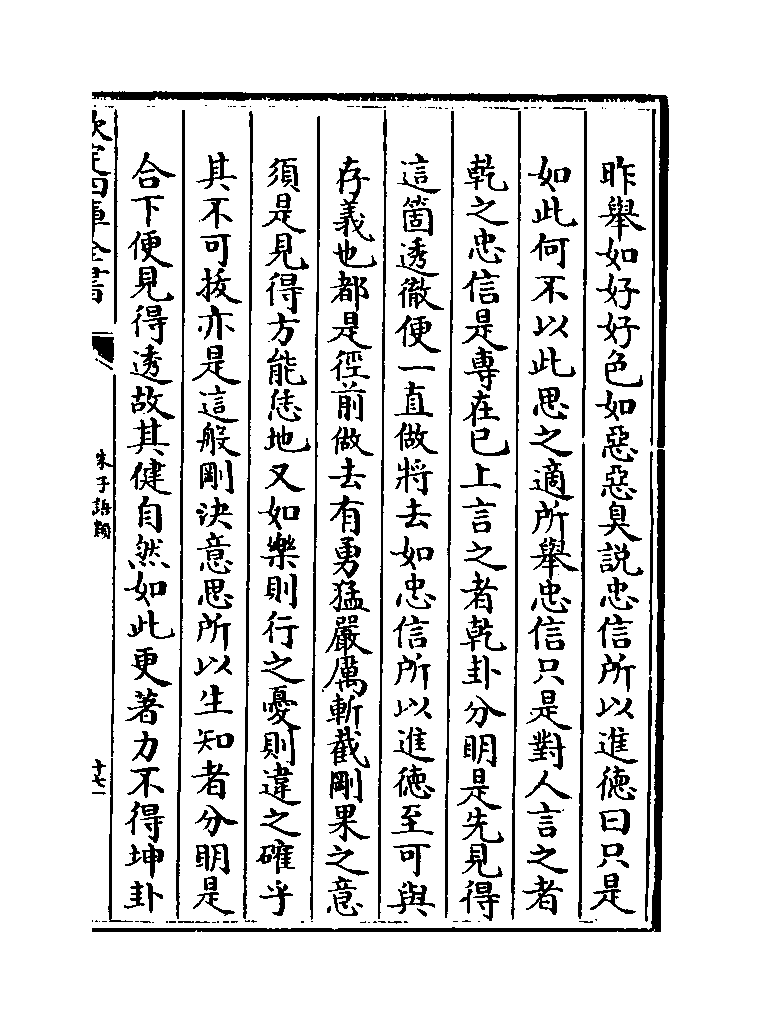 昨舉如好好色如惡惡臭説忠信所以進徳曰只是
如此何不以此思之適所舉忠信只是對人言之者
乾之忠信是專在己上言之者乾卦分明是先見得
這箇透徹便一直做將去如忠信所以進徳至可與
存義也都是徑前做去有勇猛嚴厲斬截剛果之意
須是見得方能恁地又如樂則行之憂則違之確乎
其不可拔亦是這般剛決意思所以生知者分明是
合下便見得透故其健自然如此更著力不得坤卦
欽定四庫全書
朱子語類